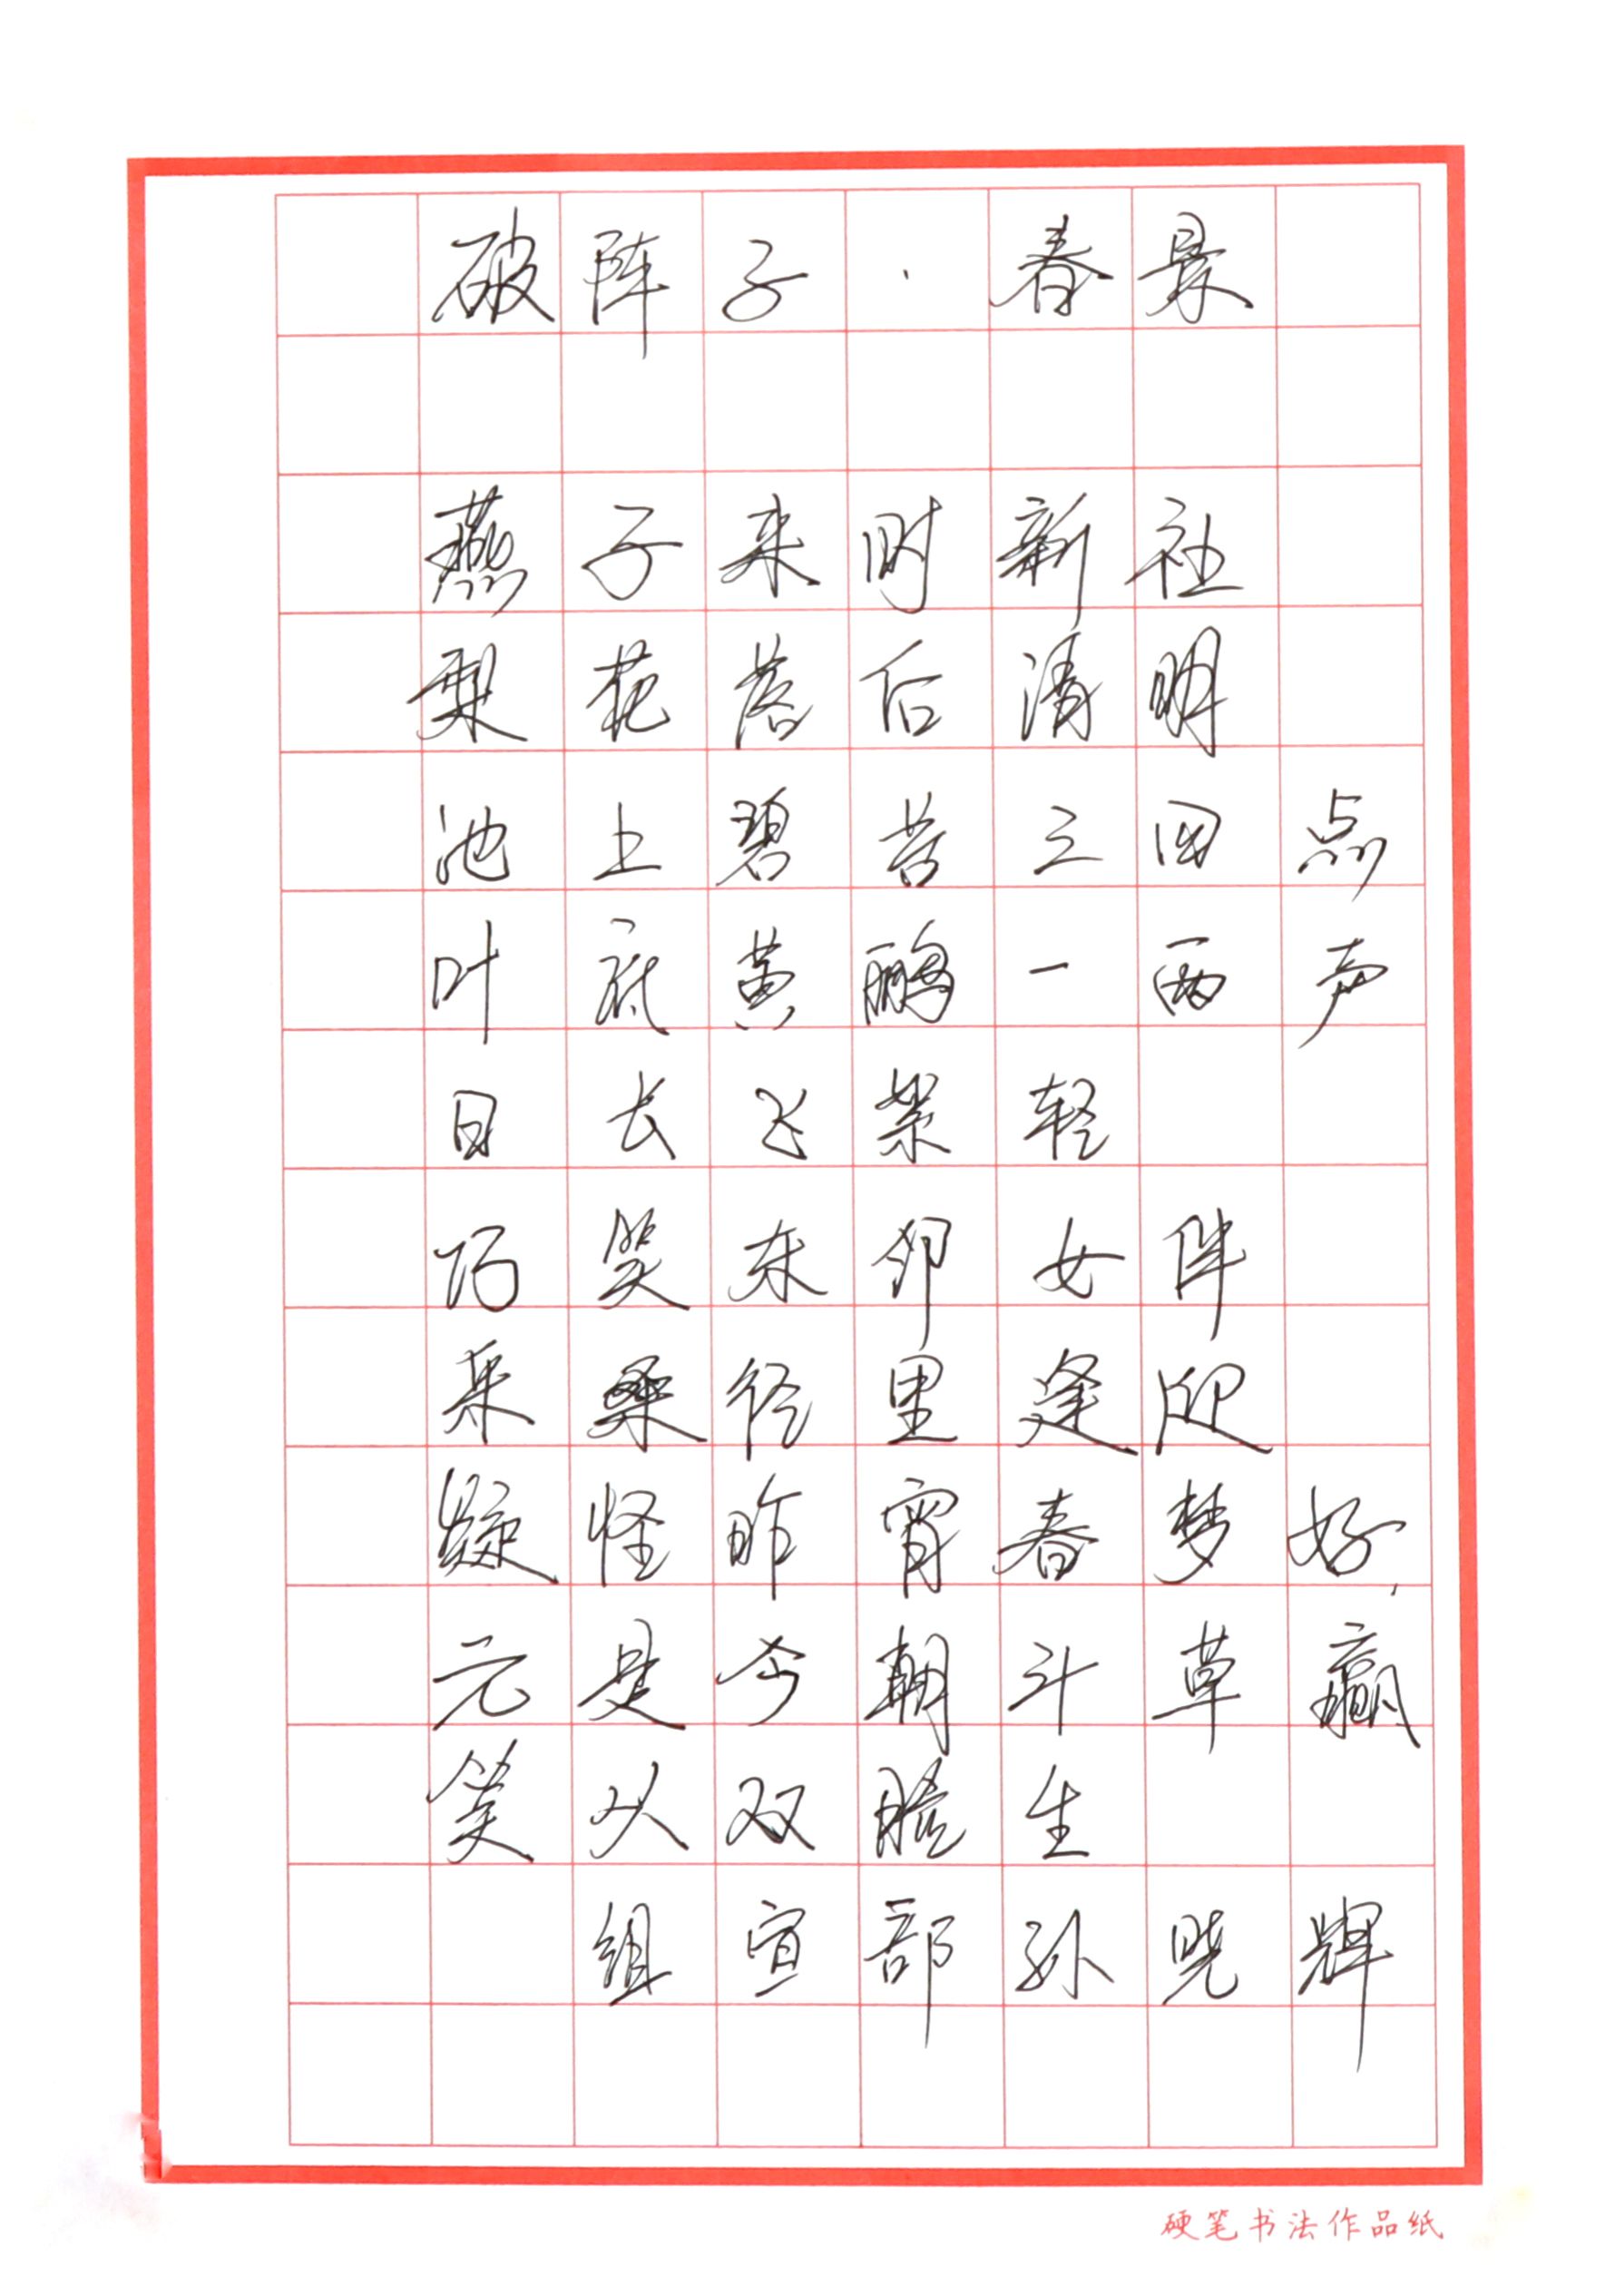 破阵子·春景
燕子来时新社
梨花落后清明
池上碧苔三四点
叶底黄鹂一两声
日长飞絮轻
巧笑东邻女伴
采桑径里逢迎
疑怪昨宵春梦好
元是今朝斗草赢
笑从双脸生
组宣部孙晓辉
硬笔书法作品纸